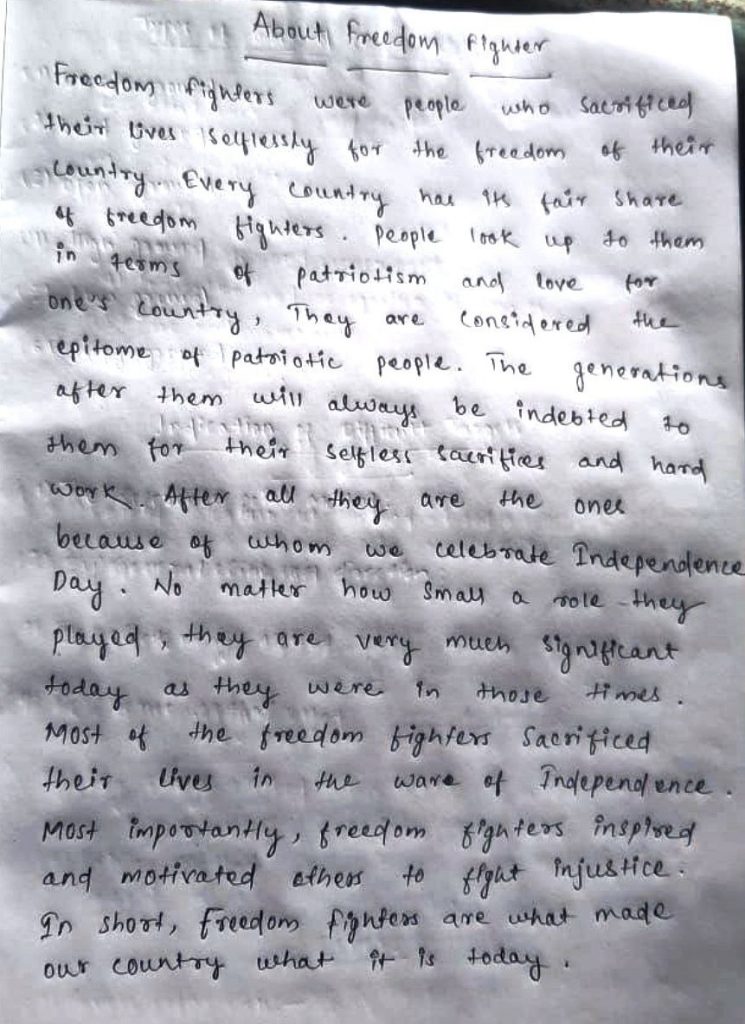 About freedom fighter
Freedom fighters were people who sacrificed
their lives selflessly for the freedom of their
country. Every country has its fair share
of freedom fighters. people look up to them
in terms of patriotism and love for
one's country, They are considered the
epitome of patriotic people. The generations
after them will always be indebted to
them for their selfless sacrifices and hard
work. After all they are the ones
because of whom we celebrate Independence
Day. No matter how small a role they
played, they are very much significant
today as they were in those times.
Most of the freedom fighters sacrificed
their lives in the ware of Independence.
Most importantly, freedom fighters inspired
and motivated others to fight injustice.
In short, freedom fighters are what made
our country what it is today.